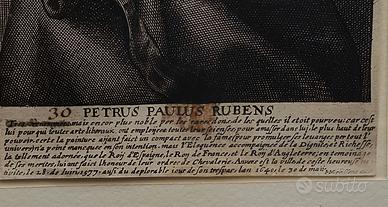 30 PETRUS PAULUS RUBENS
mais encor plus noble per les rares dons, de les quelles il etoit pourveu; car cest
lui pour qui toutes arts liberaux, ont employées toutes leur sciences, pour amasser dans lui, le plus haut de leur
pouvoir, certe la peinture ajant fait un compact avec la fame, pour promulguer ses louanges per tout l'
univers, n'a point manquée en son intention, mais l'Eloquence accompagnée de la Dignité, et Richesse,
la tellement adornée, que le Roj d'Espaigne, le Roj de France, et le Roj d'Angleterre, en temoinage
de ses merites, lui ont faict l'honeur de leur ordres de Chevalerie, Anvers est la ville de ceste heureuse
le 28 de Juin 1577, aussi du deplorable jour de son trespas l'an 1640, le 30 de maij
subito